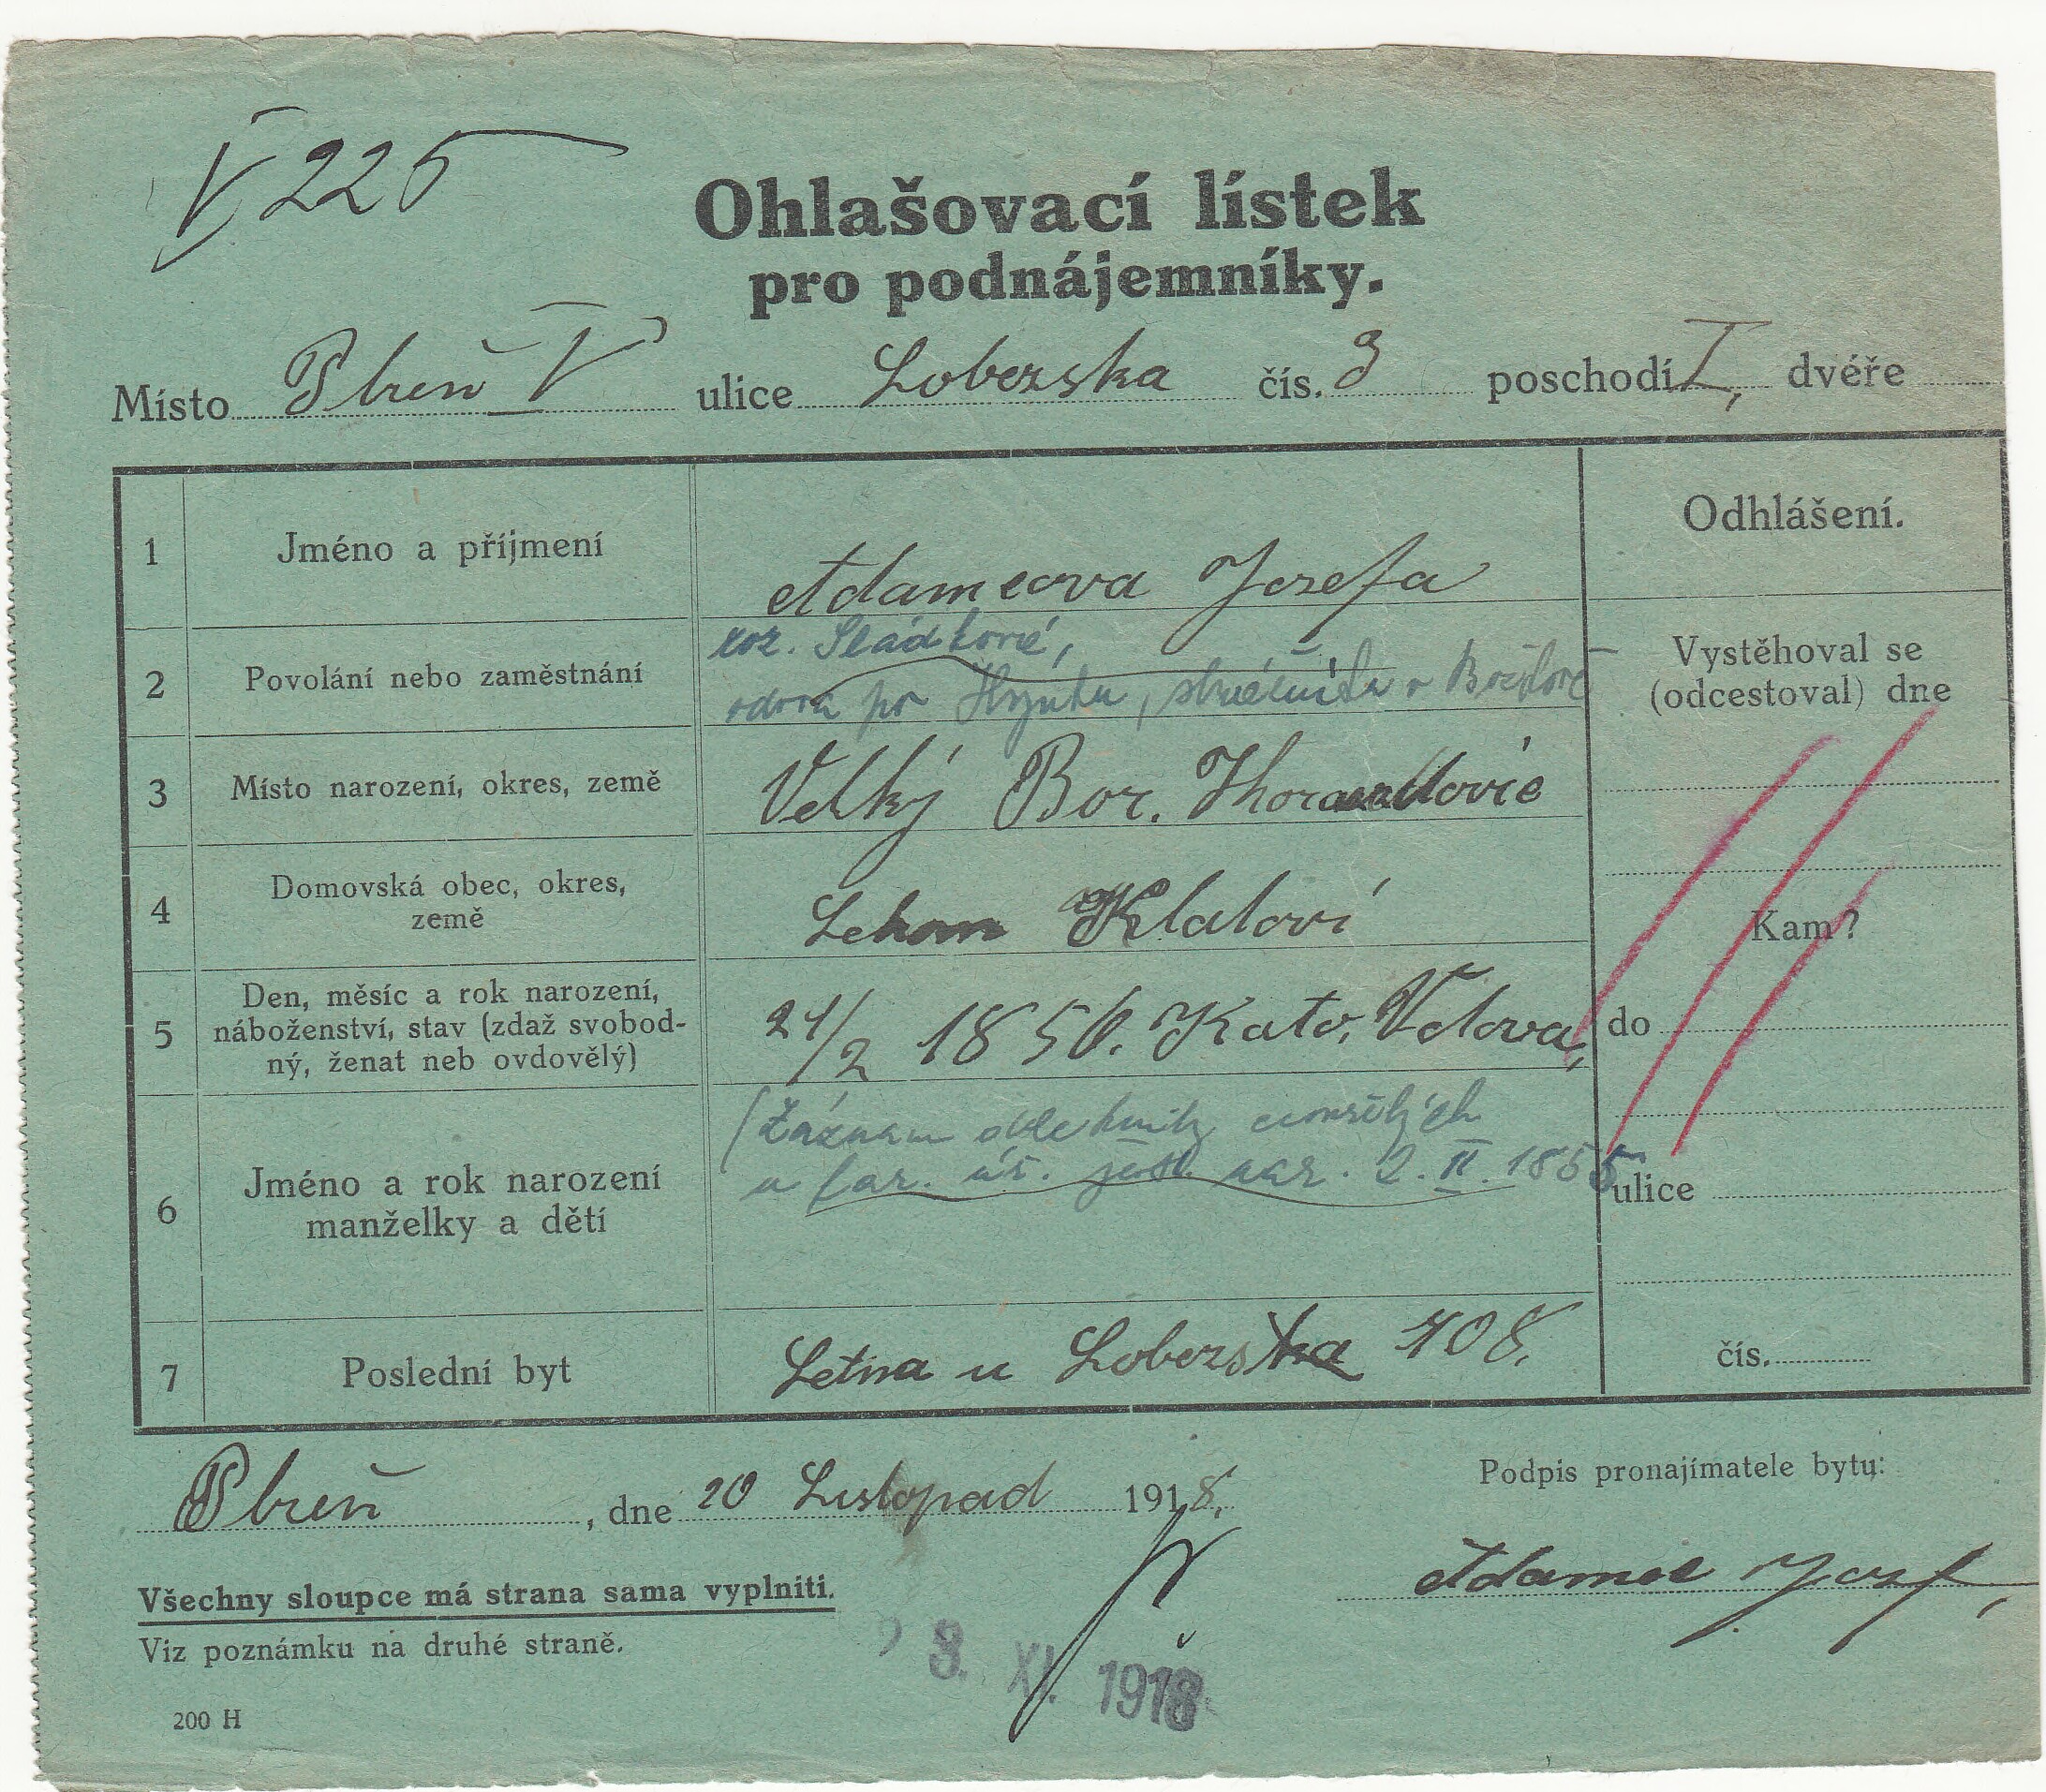 V 225
Ohlašovací lístek
pro podnájemníky.
Místo Plzeň V ulice Lobezska čís. 3 poschodí I, dvéře
1 Jméno a příjmení Adamcova Jozefa
Odhlášení.
roz. Sládkové,
2 Povolání nebo zaměstnání vdova po Hynku, strážníka v
Vystěhoval se
(odcestoval) dne
3 Místo narození, okres, země Velký Bor.
4 Domovská obec, okres,
země Klatovi
Kam?
5 Den, měsíc a rok narození,
náboženství, stav (zdaž svobod-
ný, ženat neb ovdovělý) 21/2 1856. Kato. Vdova,
do
(Záznam dle knihy zemřelých
u far. úř. jest nar. 2. II. 1855
6 Jméno a rok narození
manželky a dětí
ulice
7 Poslední byt Letna u Lobezska 408.
čís.
Plzeň, dne 20 Listopad 1918.
Podpis pronajímatele bytu:
Adamec Jozef,
Všechny sloupce má strana sama vyplniti.
Viz poznámku na druhé straně.
3. XI. 1918
200 H